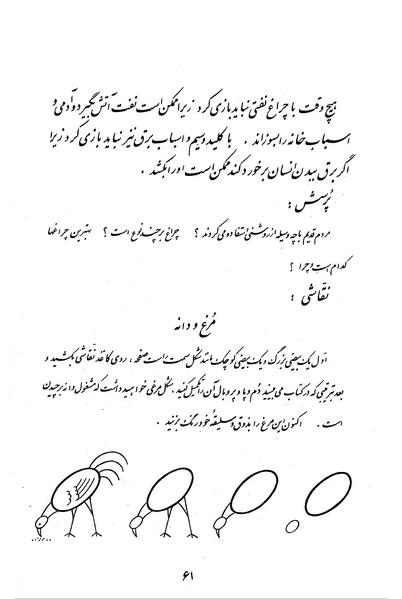 هیچ وقت با چراغ نفتی نباید بازی کرد زیرا ممکن است نفت آتش بگیرد و آدمی و
اسباب خانه را بسوزاند . با کلید و سیم و اسباب برق نیز نباید بازی کرد زیرا
اگر برق ببدن انسان برخورد کند ممکن است او را بکشد .
پرسش :
مردم قدیم با چه وسیله از روشنی استفاده می‌کردند ؟ چراغ بر چند نوع است ؟ بهترین چراغها
کدام است و چرا ؟
نقاشی :
مرغ و دانه
اول یک بیضی بزرگ و یک بیضی کوچک مانند شکل سمت راست صفحه ، روی کاغذ نقاشی بکشید و
بعد بترتیبی که در کتاب می‌بینید دم و پا و پر و بال آن را تکمیل کنید . شکل مرغی خواهید داشت که مشغول دانه برچیدن
است . اکنون این مرغ را بذوق و سلیقهٔ خود رنگ بزنید .
۶۱